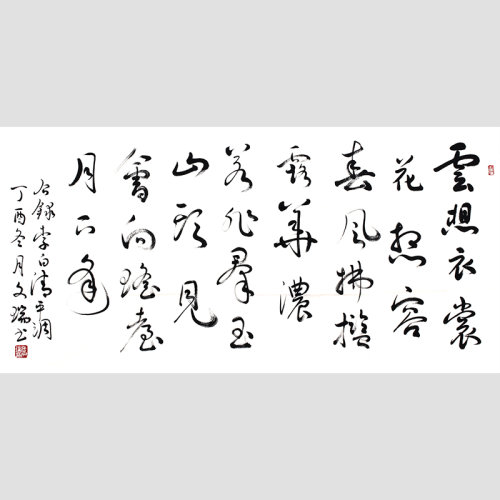 雲想衣裳
花想容
春風拂檻
露華濃
若非羣玉
山頭見
會向瑤臺
月下逢
錄李白清平調
丁酉冬月文瑞书